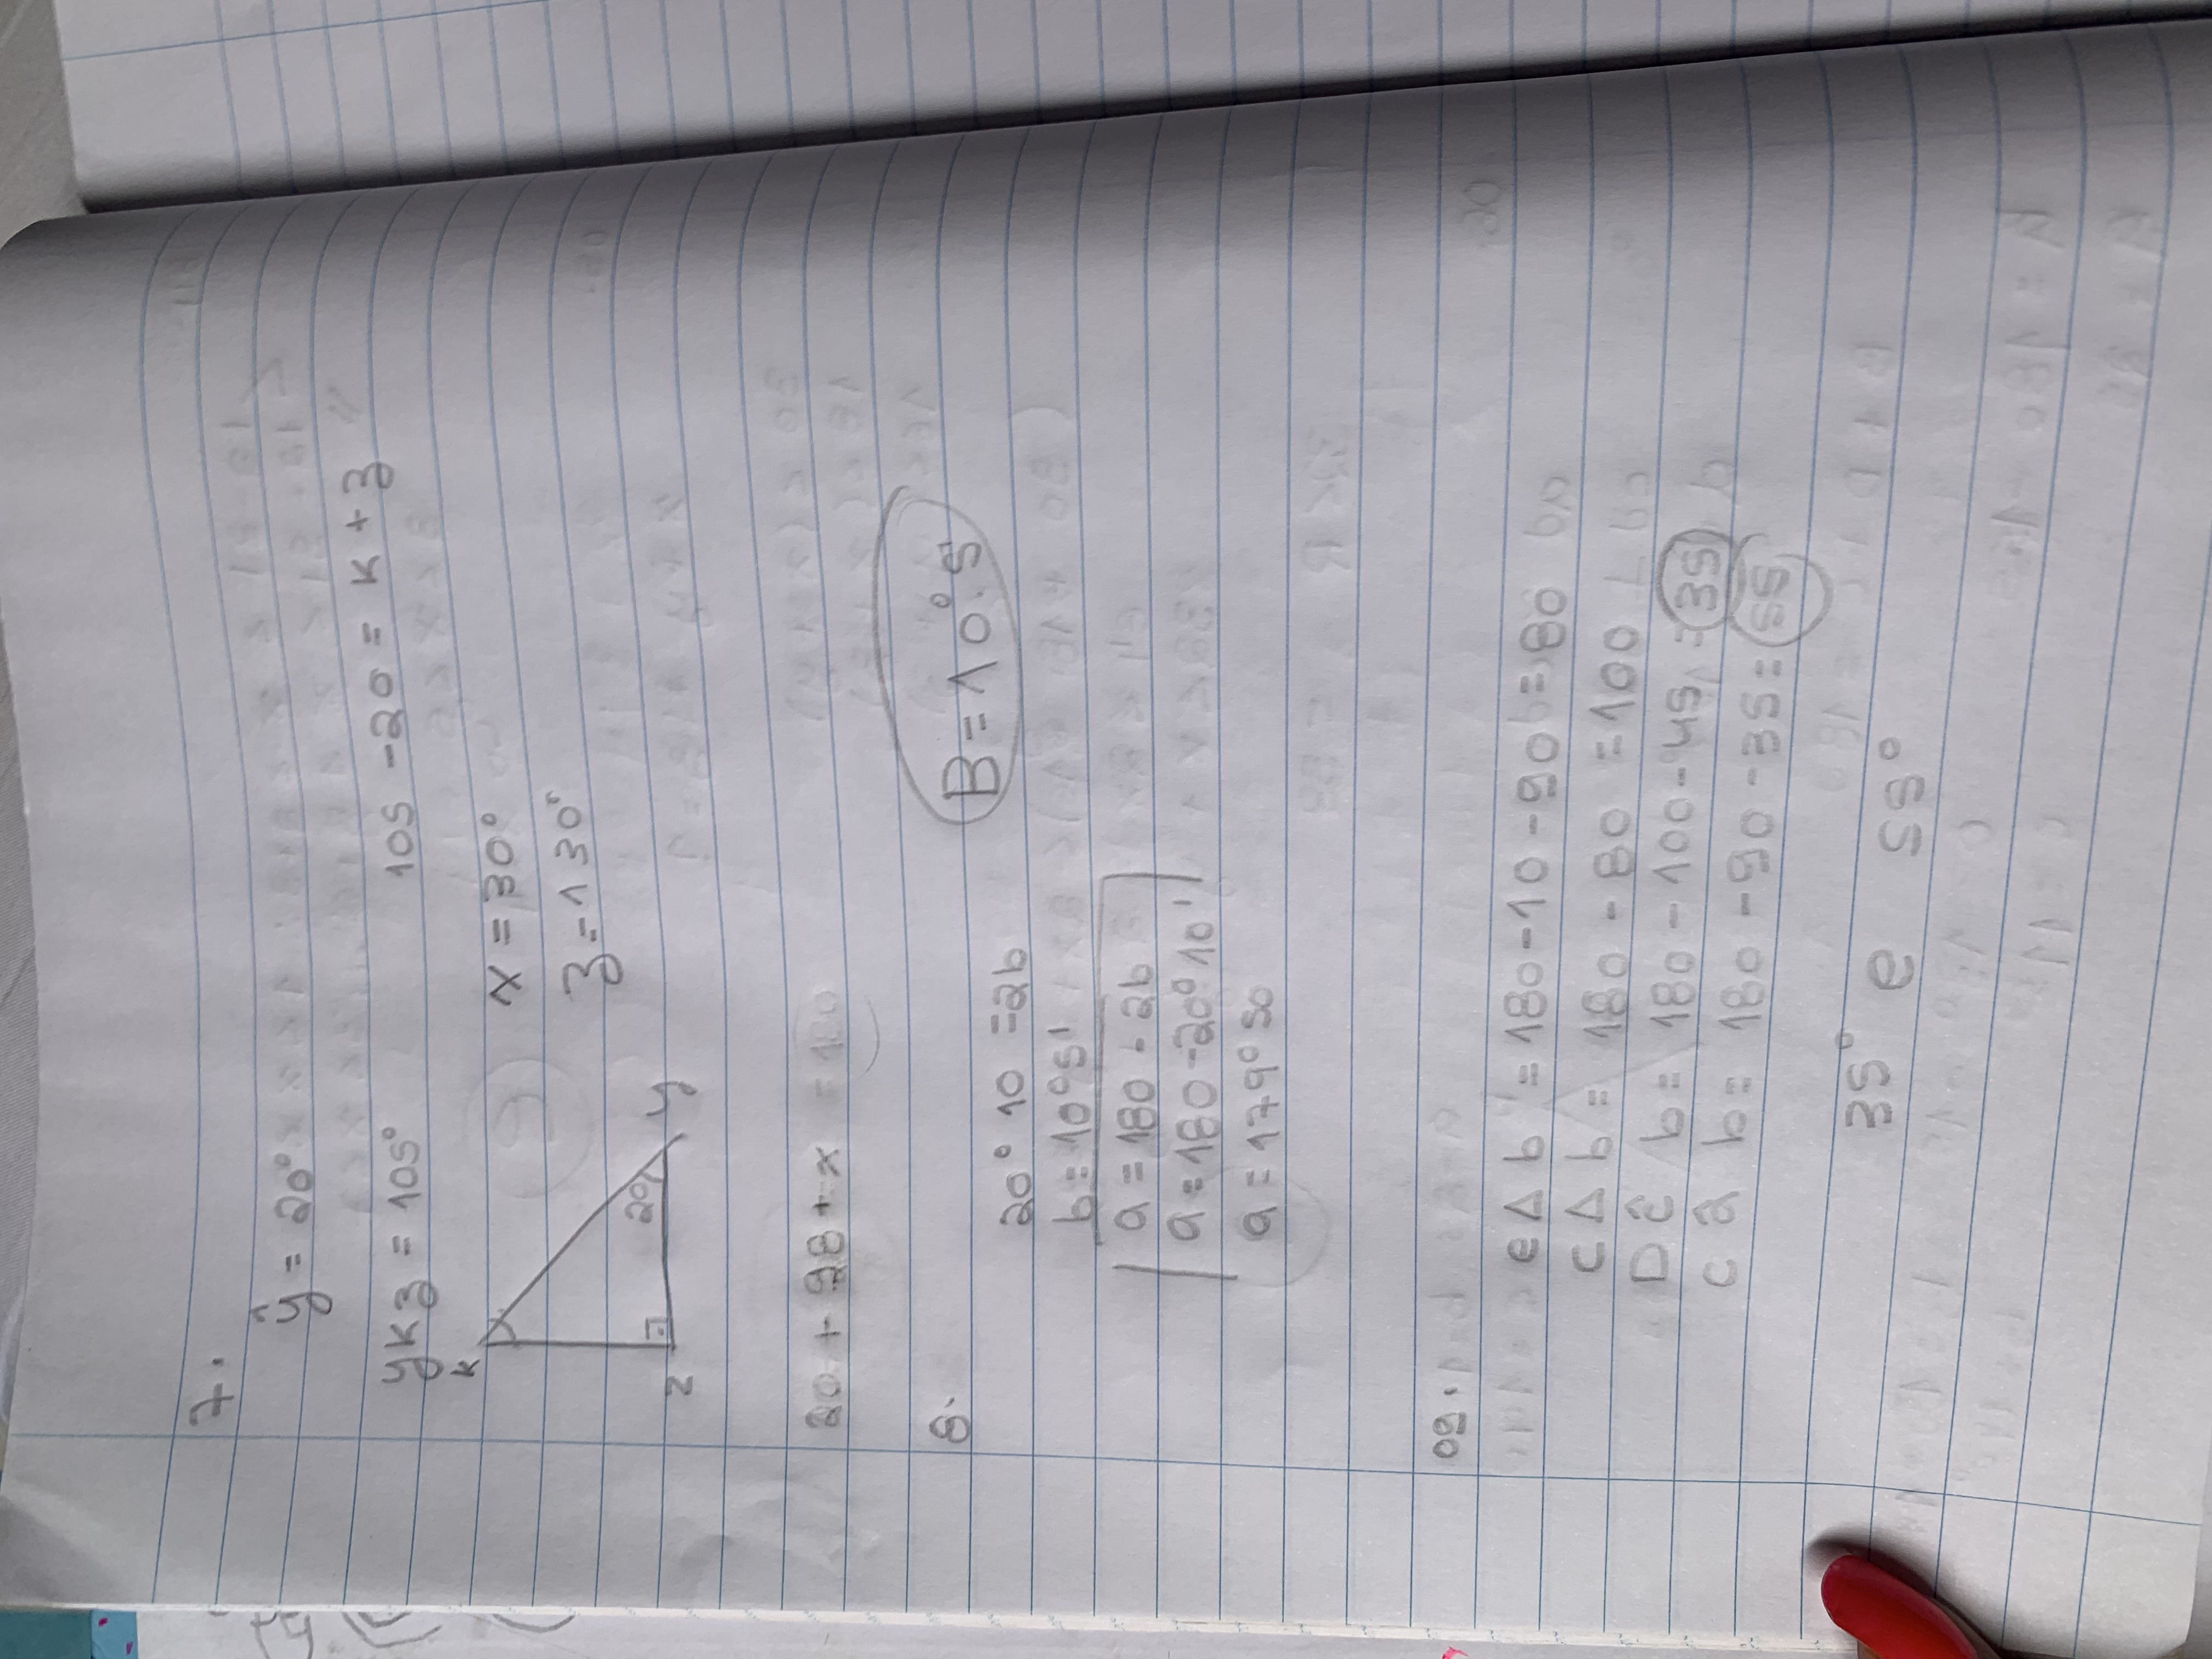 7.
ŷ = 20°
ykz = 105°
105 - 20 = k + z
k
x = 30°
z = 130°
20
z
y
20 + 28 + x = 180
8.
B = 10°5'
20° 10 = 2b
b = 10°5'
a = 180 - 2b
a = 180 - 20° 10'
a = 179° 50
09.
e Δ b = 180 - 10 - 90 = 80
c Δ b = 180 - 80 = 100
D ĉ b = 180 - 100 - 45 = 35
c â b = 180 - 90 - 35 = 55
35° e 55°